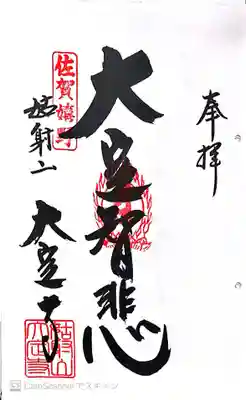 奉拝
大定智悲
佐賀嬉野
姑射山
大定寺
CamScanner でスキャン